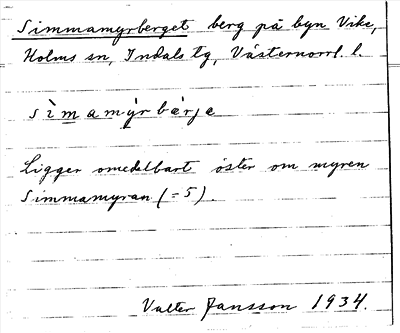 Simmamyrberget berg på byn Vike,
Holms sn, Indals tg, Västernorrl. l.
sìmamỳrbærje
Ligger omedelbart öster om myren
Simmamyran (= 5).
Valter Jansson 1934.